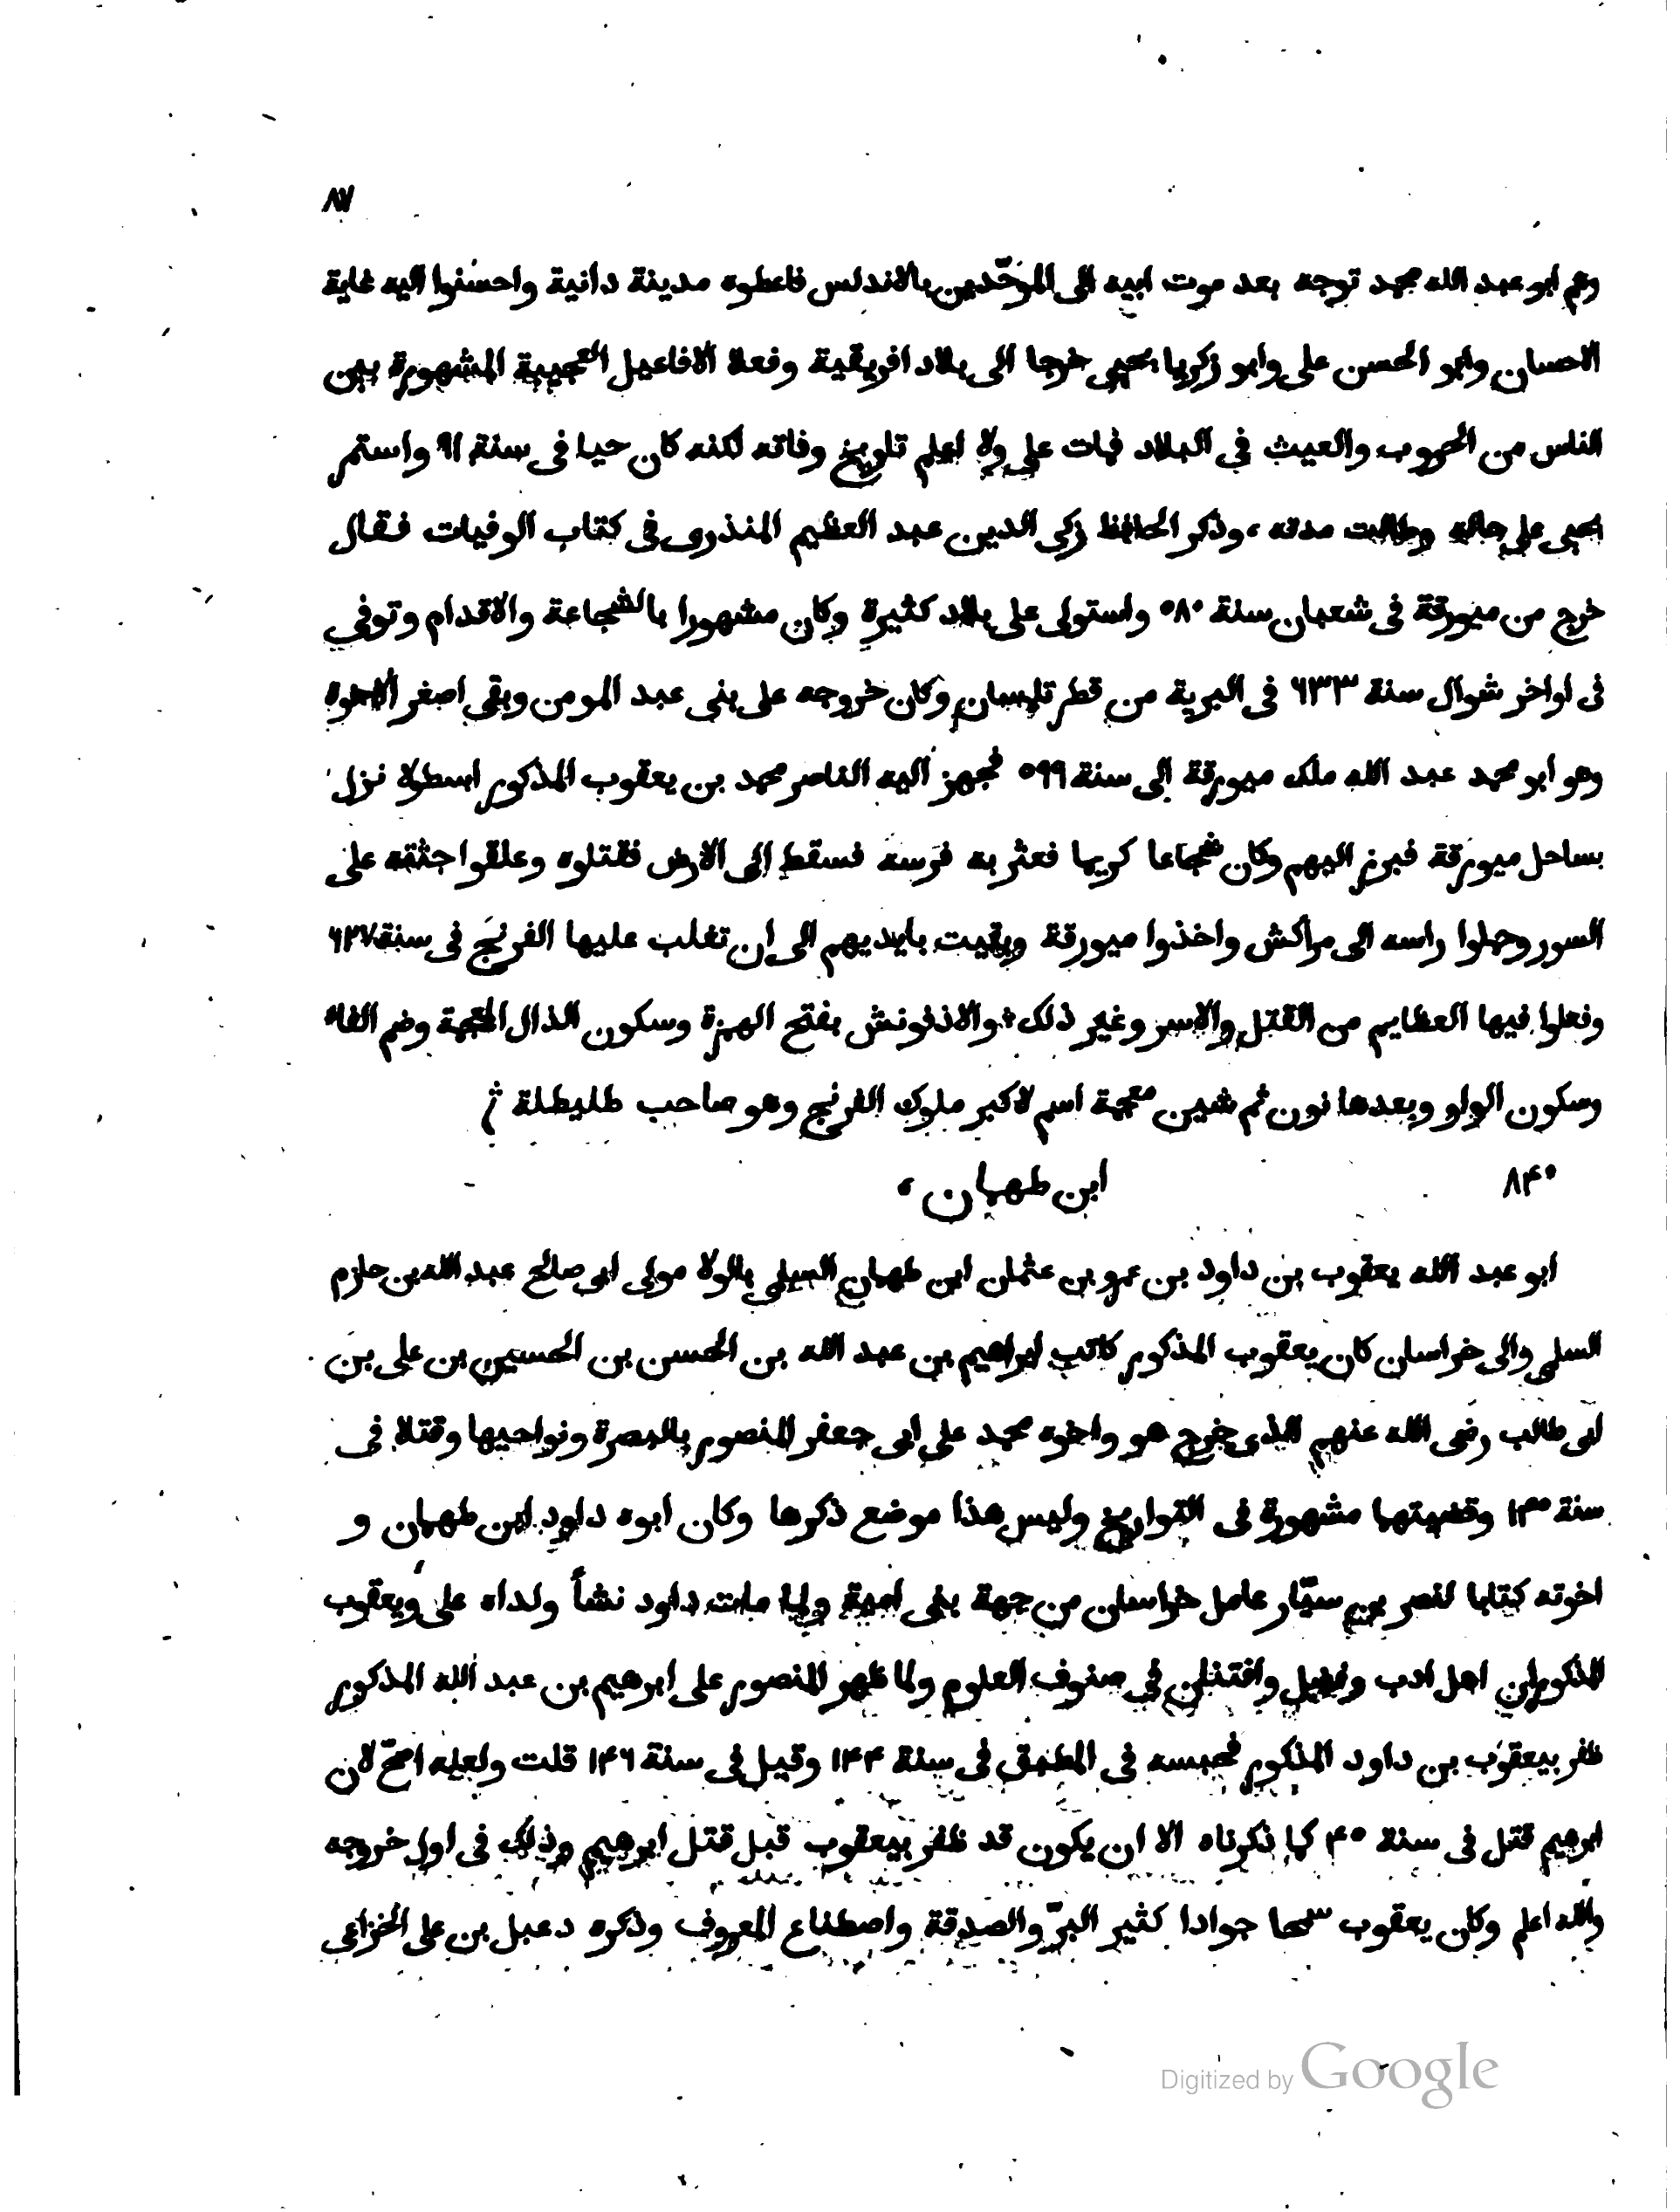 ٨٧
وهم ابو عبد الله محمد توجه بعد موت ابيه الى الموحّدين بالاندلس فاعطوه مدينة دانية واحسنوا اليه غاية
الاحسان وابو الحسن على وابو زكريا يحيى خرجا الى بلاد افريقية وفعلا الافاعيل العجيبة المشهورة بين
الناس من الحروب والعيث فى البلاد فمات على ولا اعلم تاريخ وفاته لكنه كان حيا فى سنة ٩١ واستمر
يحيى على حاله وطالت مدته ، وذكر الحافظ زكى الدين عبد العظيم المنذرى فى كتاب الوفيات فقال
خرج من ميورقة فى شعبان سنة ٥٨٠ واستولى على بلاد كثيرة وكان مشهورا بالشجاعة والاقدام وتوفى
فى اواخر شوال سنة ٦٣٣ فى البرية من قطر تلمسان وكان خروجه على بنى عبد المومن وبقى اصغر الاخوة
وهو ابو محمد عبد الله ملك ميورقة الى سنة ٥٩٩ فجهز اليه الناصر محمد بن يعقوب المذكور اسطولا نزل
بساحل ميورقة فبرز اليهم وكان شجاعا كريما فعثر به فرسه فسقط الى الارض فقتلوه وعلقوا جثته على
السور وحملوا راسه الى مراكش واخذوا ميورقة وبقيت بايديهم الى ان تغلب عليها الفرنج فى سنة ٦٢٧
وفعلوا فيها العظايم من القتل والاسر وغير ذلك ؛ والاذفونش بفتح الهمزة وسكون الذال المعجمة وضم الفاء
وسكون الواو وبعدها نون ثم شين معجمة اسم لاكبر ملوك الفرنج وهو صاحب طليطلة ؛
٨٤٠ ابن طهمان ،
ابو عبد الله يعقوب بن داود بن عمرو بن عثمان ابن طهمان السلمى بالولا مولى ابى صالح عبد الله بن حازم
السلمى والى خراسان كان يعقوب المذكور كاتب ابراهيم بن عبد الله بن الحسن بن الحسين بن على بن
ابى طالب رضى الله عنهم الذى خرج هو واخوه محمد على ابى جعفر المنصور بالبصرة ونواحيها وقتلا فى
سنة وقضيتهما مشهورة فى التواريخ وليس هذا موضع ذكرها وكان ابوه داود ابن طهمان و
اخوته كتابا لنصر بن سيّار عامل خراسان من جهة بنى امية ولما مات داود نشأ ولداه على ويعقوب
المذكوران اهل ادب وفضل وافتنان فى صنوف العلوم ولما ظهر المنصور على ابرهيم بن عبد الله المذكور
ظفر بيعقوب بن داود المذكور فحبسه فى المطبق فى سنة ١٤٤ وقيل فى سنة ١٤٦ قلت ولعله اصحّ لان
ابرهيم قتل فى سنة ٤٥ كما ذكرناه الا ان يكون قد ظفر بيعقوب قبل قتل ابرهيم وذلك فى اول خروجه
والله اعلم وكان يعقوب سمحا جوادا كثير البرّ والصدقة واصطناع المعروف وذكره دعبل بن على الخزاعى
Digitized by Google